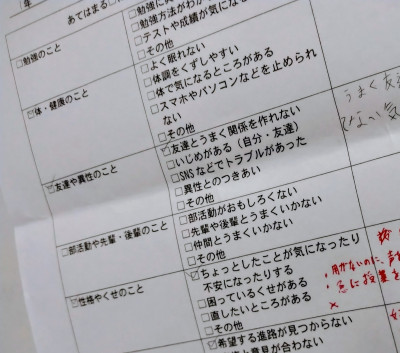 年
あてはまる
□勉強方法がわか
□テストや成績が気になる
□その他
□勉強のこと
□よく眠れない
□体調をくずしやすい
□体で気になるところがある
□スマホやパソコンなどを止められ
ない
□その他
☑体・健康のこと
☑友達とうまく関係を作れない
□いじめがある（自分・友達）
□SNSなどでトラブルがあった
□異性とのつきあい
□その他
☑友達や異性のこと
うまく友達
□部活動がおもしろくない
□先輩や後輩とうまくいかない
□仲間とうまくいかない
□その他
□部活動や先輩・後輩のこと
☑ちょっとしたことが気になったり
不安になったりする
□困っているくせがある
□直したいところがある
□その他
☑性格やくせのこと
☑希望する進路が見つからない
意見が合わない